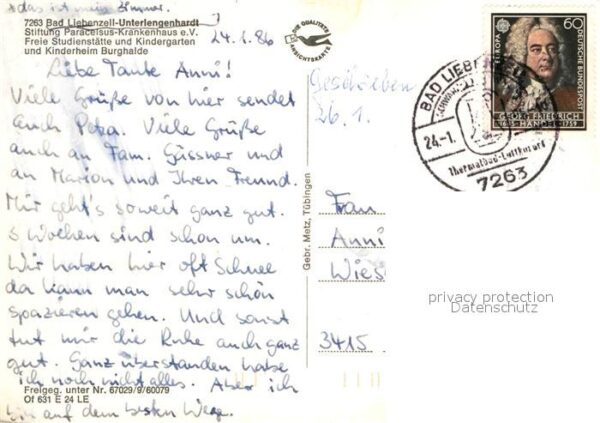 das ist mein Zimmer.
7263 Bad Liebenzell-Unterlengenhardt
Stiftung Paracelsus-Krankenhaus e.V.
Freie Studienstätte und Kindergarten
und Kinderheim Burghalde
24.1.86
Liebe Tante Anni!
Viele Grüße von hier sendet
auch Viele Grüße
auch an Fam. Gässner und
an Marion und Ihren Freund.
Mir geht's soweit ganz gut.
5 Wochen sind schon um.
Wir haben hier oft Schnee
da kann man sehr schön
spazieren gehen. Und sonst
tut mir die Ruhe auch ganz
gut. Ganz überstanden habe
ich noch nicht alles. Aber ich
bin auf dem besten Wege.
Freigeg. unter Nr. 67029/9/60079
Of 631 E 24 LE
QUALITÄTS
ANSICHTSKARTE
Gebr. Metz, Tübingen
Geschrieben
26.1.
EUROPA
60
DEUTSCHE BUNDESPOST
GEORG FRIEDRICH
HÄNDEL 1759
BAD LIEBENZELL
24.-1.
Thermalbad-Luftkurort
7263
Frau
Anni
Wies
3415
privacy protection
Datenschutz